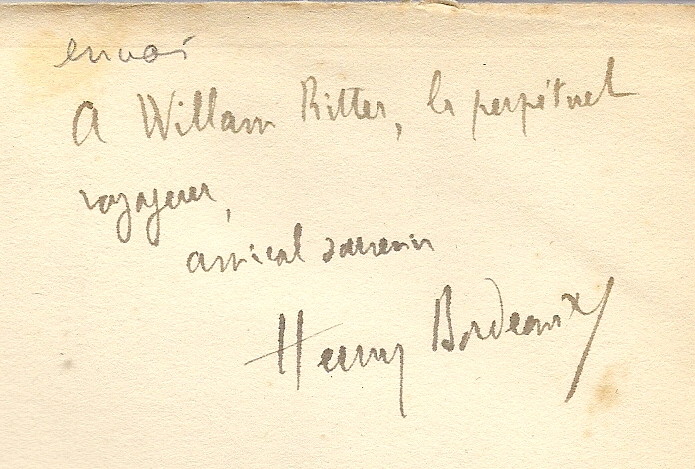 envoi
A William Ritter, le perpétuel
voyageur,
amical souvenir
Henry Bordeaux